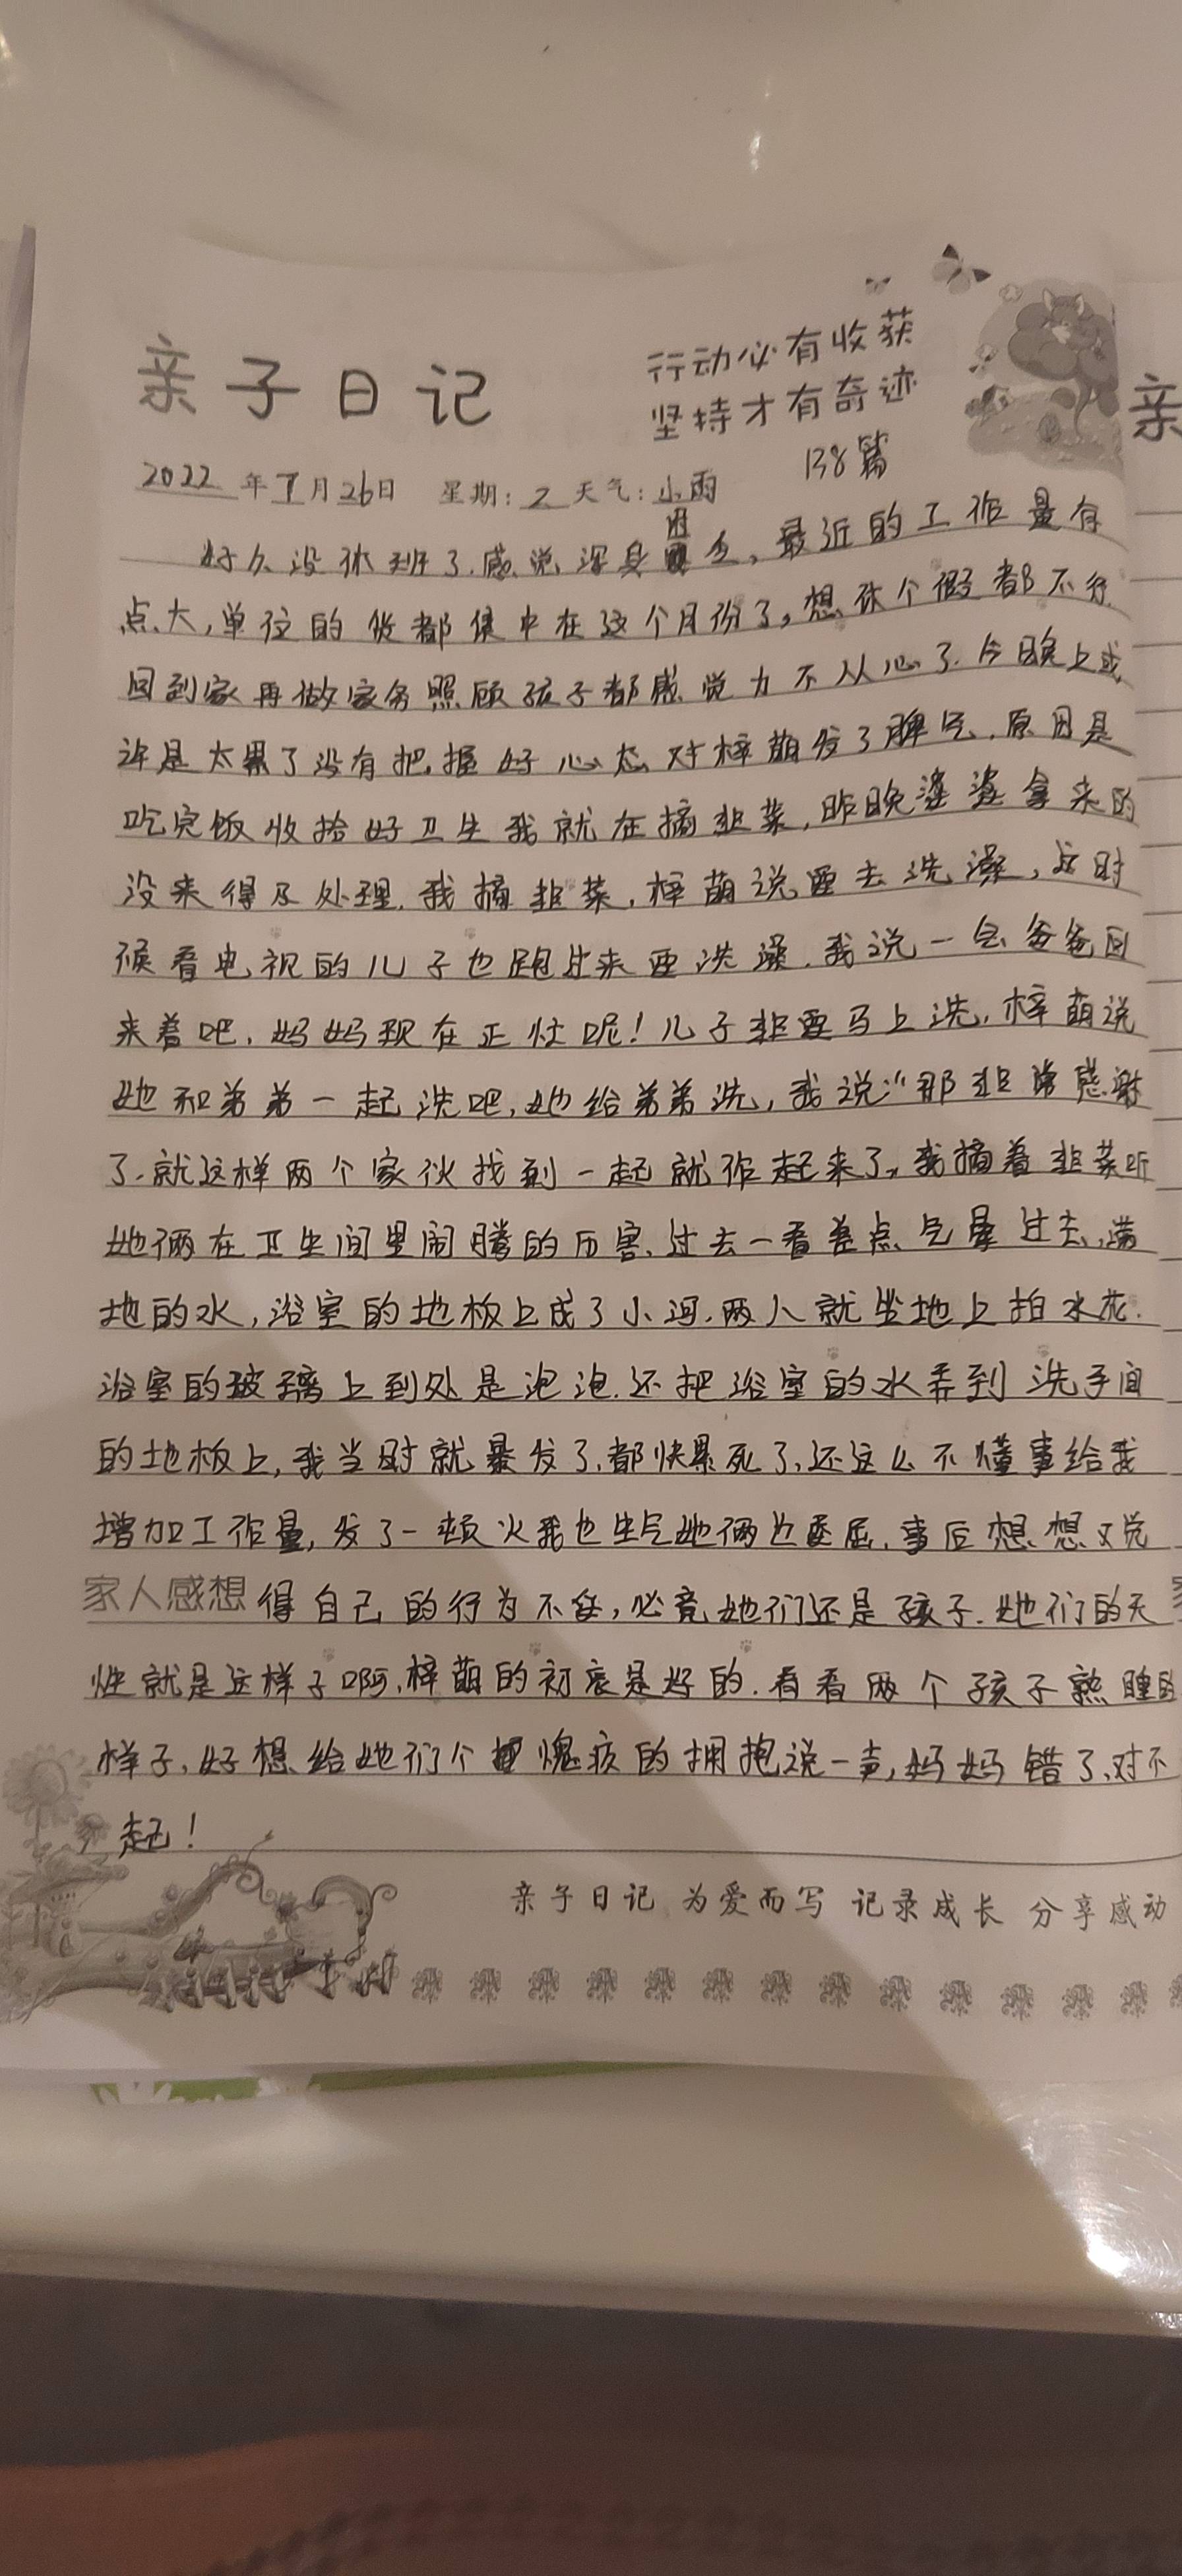 亲子日记
行动必有收获
坚持才有奇迹
138篇
2022年7月26日 星期:2 天气:小雨
好久没休班了.感觉浑身困乏,最近的工作量有
点大,单位的货都集中在这个月份了,想休个假都不行.
回到家再做家务照顾孩子都感觉力不从心了.今晚上或
许是太累了没有把握好心态对梓萌发了脾气.原因是
吃完饭收拾好卫生我就在摘韭菜,昨晚婆婆拿来的
没来得及处理.我摘韭菜,梓萌说要去洗澡,这时
候看电视的儿子也跑过来要洗澡.我说一会爸爸回
来着吧,妈妈现在正忙呢!儿子非要马上洗,梓萌说
她和弟弟一起洗吧,她给弟弟洗,我说“那非常感谢
了.就这样两个家伙找到一起就作起来了,我摘着韭菜听
她俩在卫生间里闹腾的历害、过去一看差点气晕过去,满
地的水,浴室的地板上成了小河.两人就坐地上拍水花.
浴室的玻璃上到处是泡泡.还把浴室的水弄到洗手间
的地板上,我当时就暴发了,都快累死了、还这么不懂事给我
增加工作量,发了一顿火我也生气她俩也委屈.事后想想又觉
家人感想 得自己的行为不妥,必竟她们还是孩子.她们的天
性就是这样子啊,梓萌的初衷是好的.看看两个孩子熟睡的
样子、好想给她们个愧疚的拥抱说一声,妈妈错了、对不
起!
亲子日记 为爱而写 记录成长 分享感动
亲